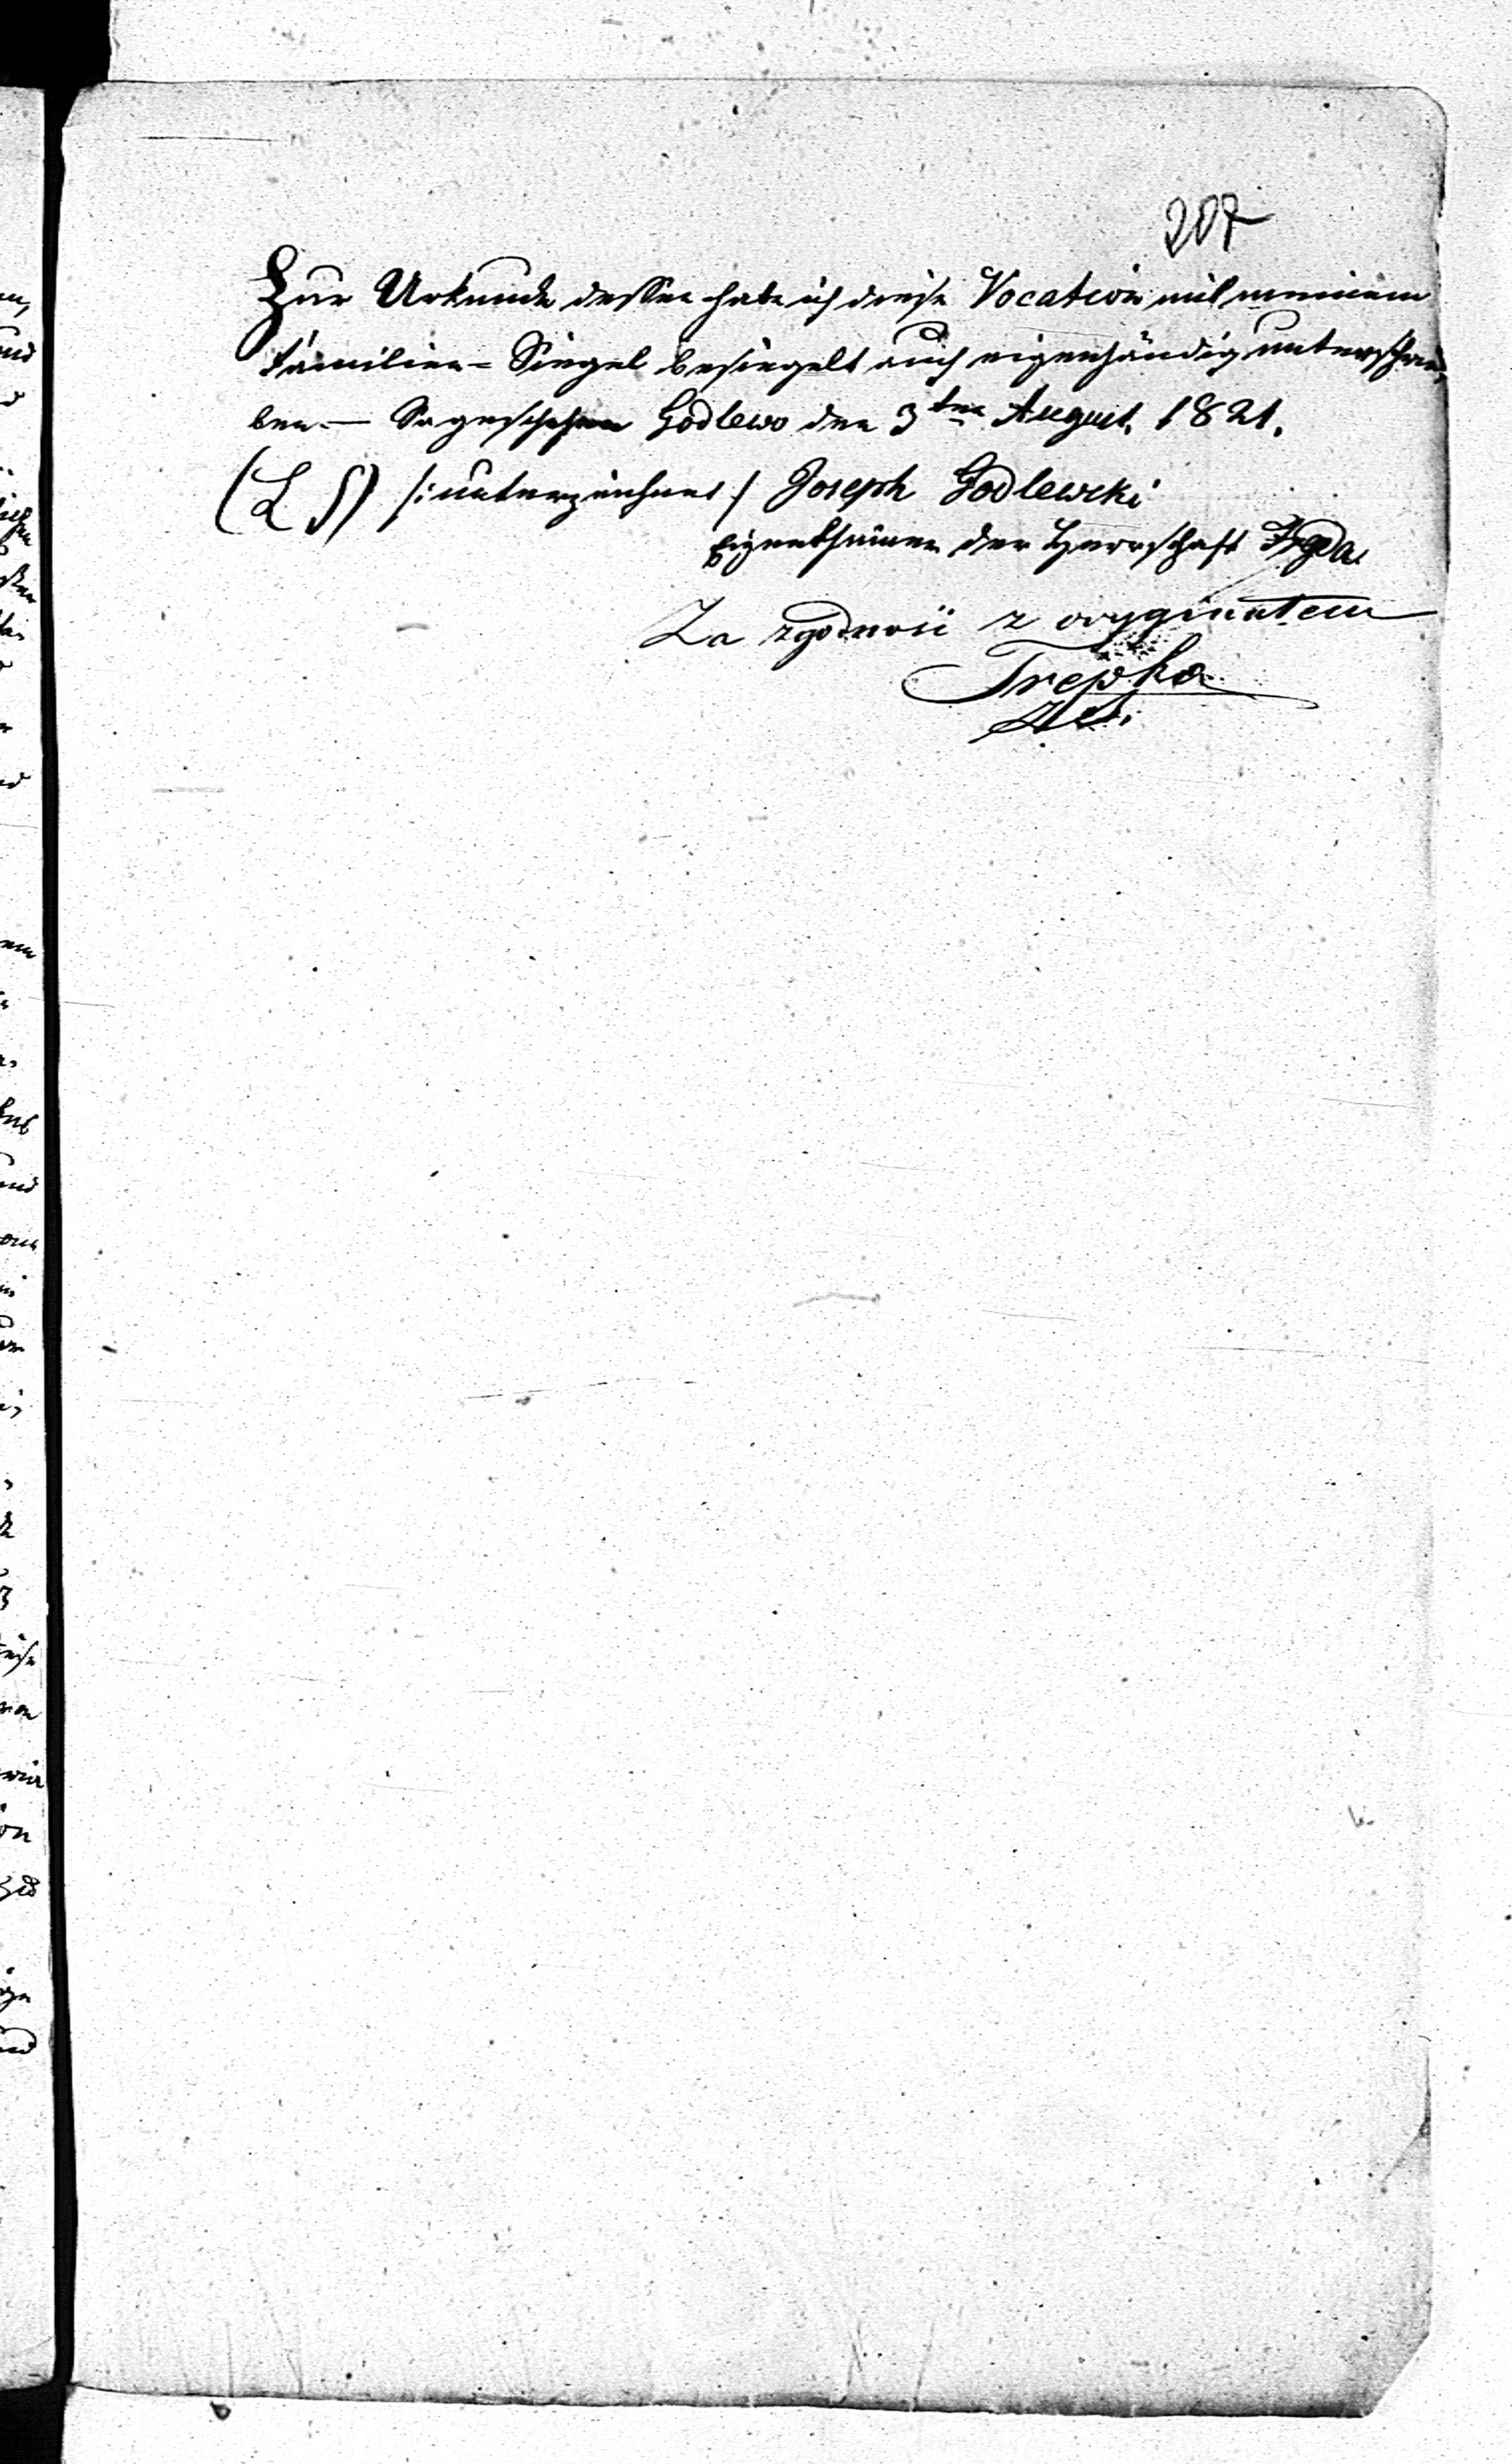 207
Zur Urkunde dessen habe ich diese Vocation mit meinem
Familien= Siegel besiegelt auch eigenhändig unterschrie,
ben.— So geschehen Godlewo den 3ten August. 1821.
(L S) /: unterzeichnet :/ Joseph Godlewski
Eigenthümer der Herrschaft
Za zgodność z oryginałem
Trepka